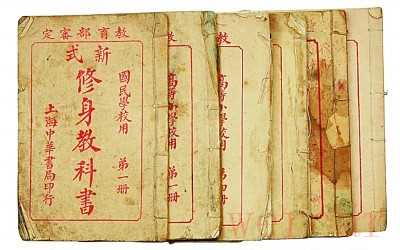 教育部審定
新式
國民學校用 第一冊
修身教科書
上海中華書局印行
教
高等小學校用 第一冊
教
高等小學校用 第四冊